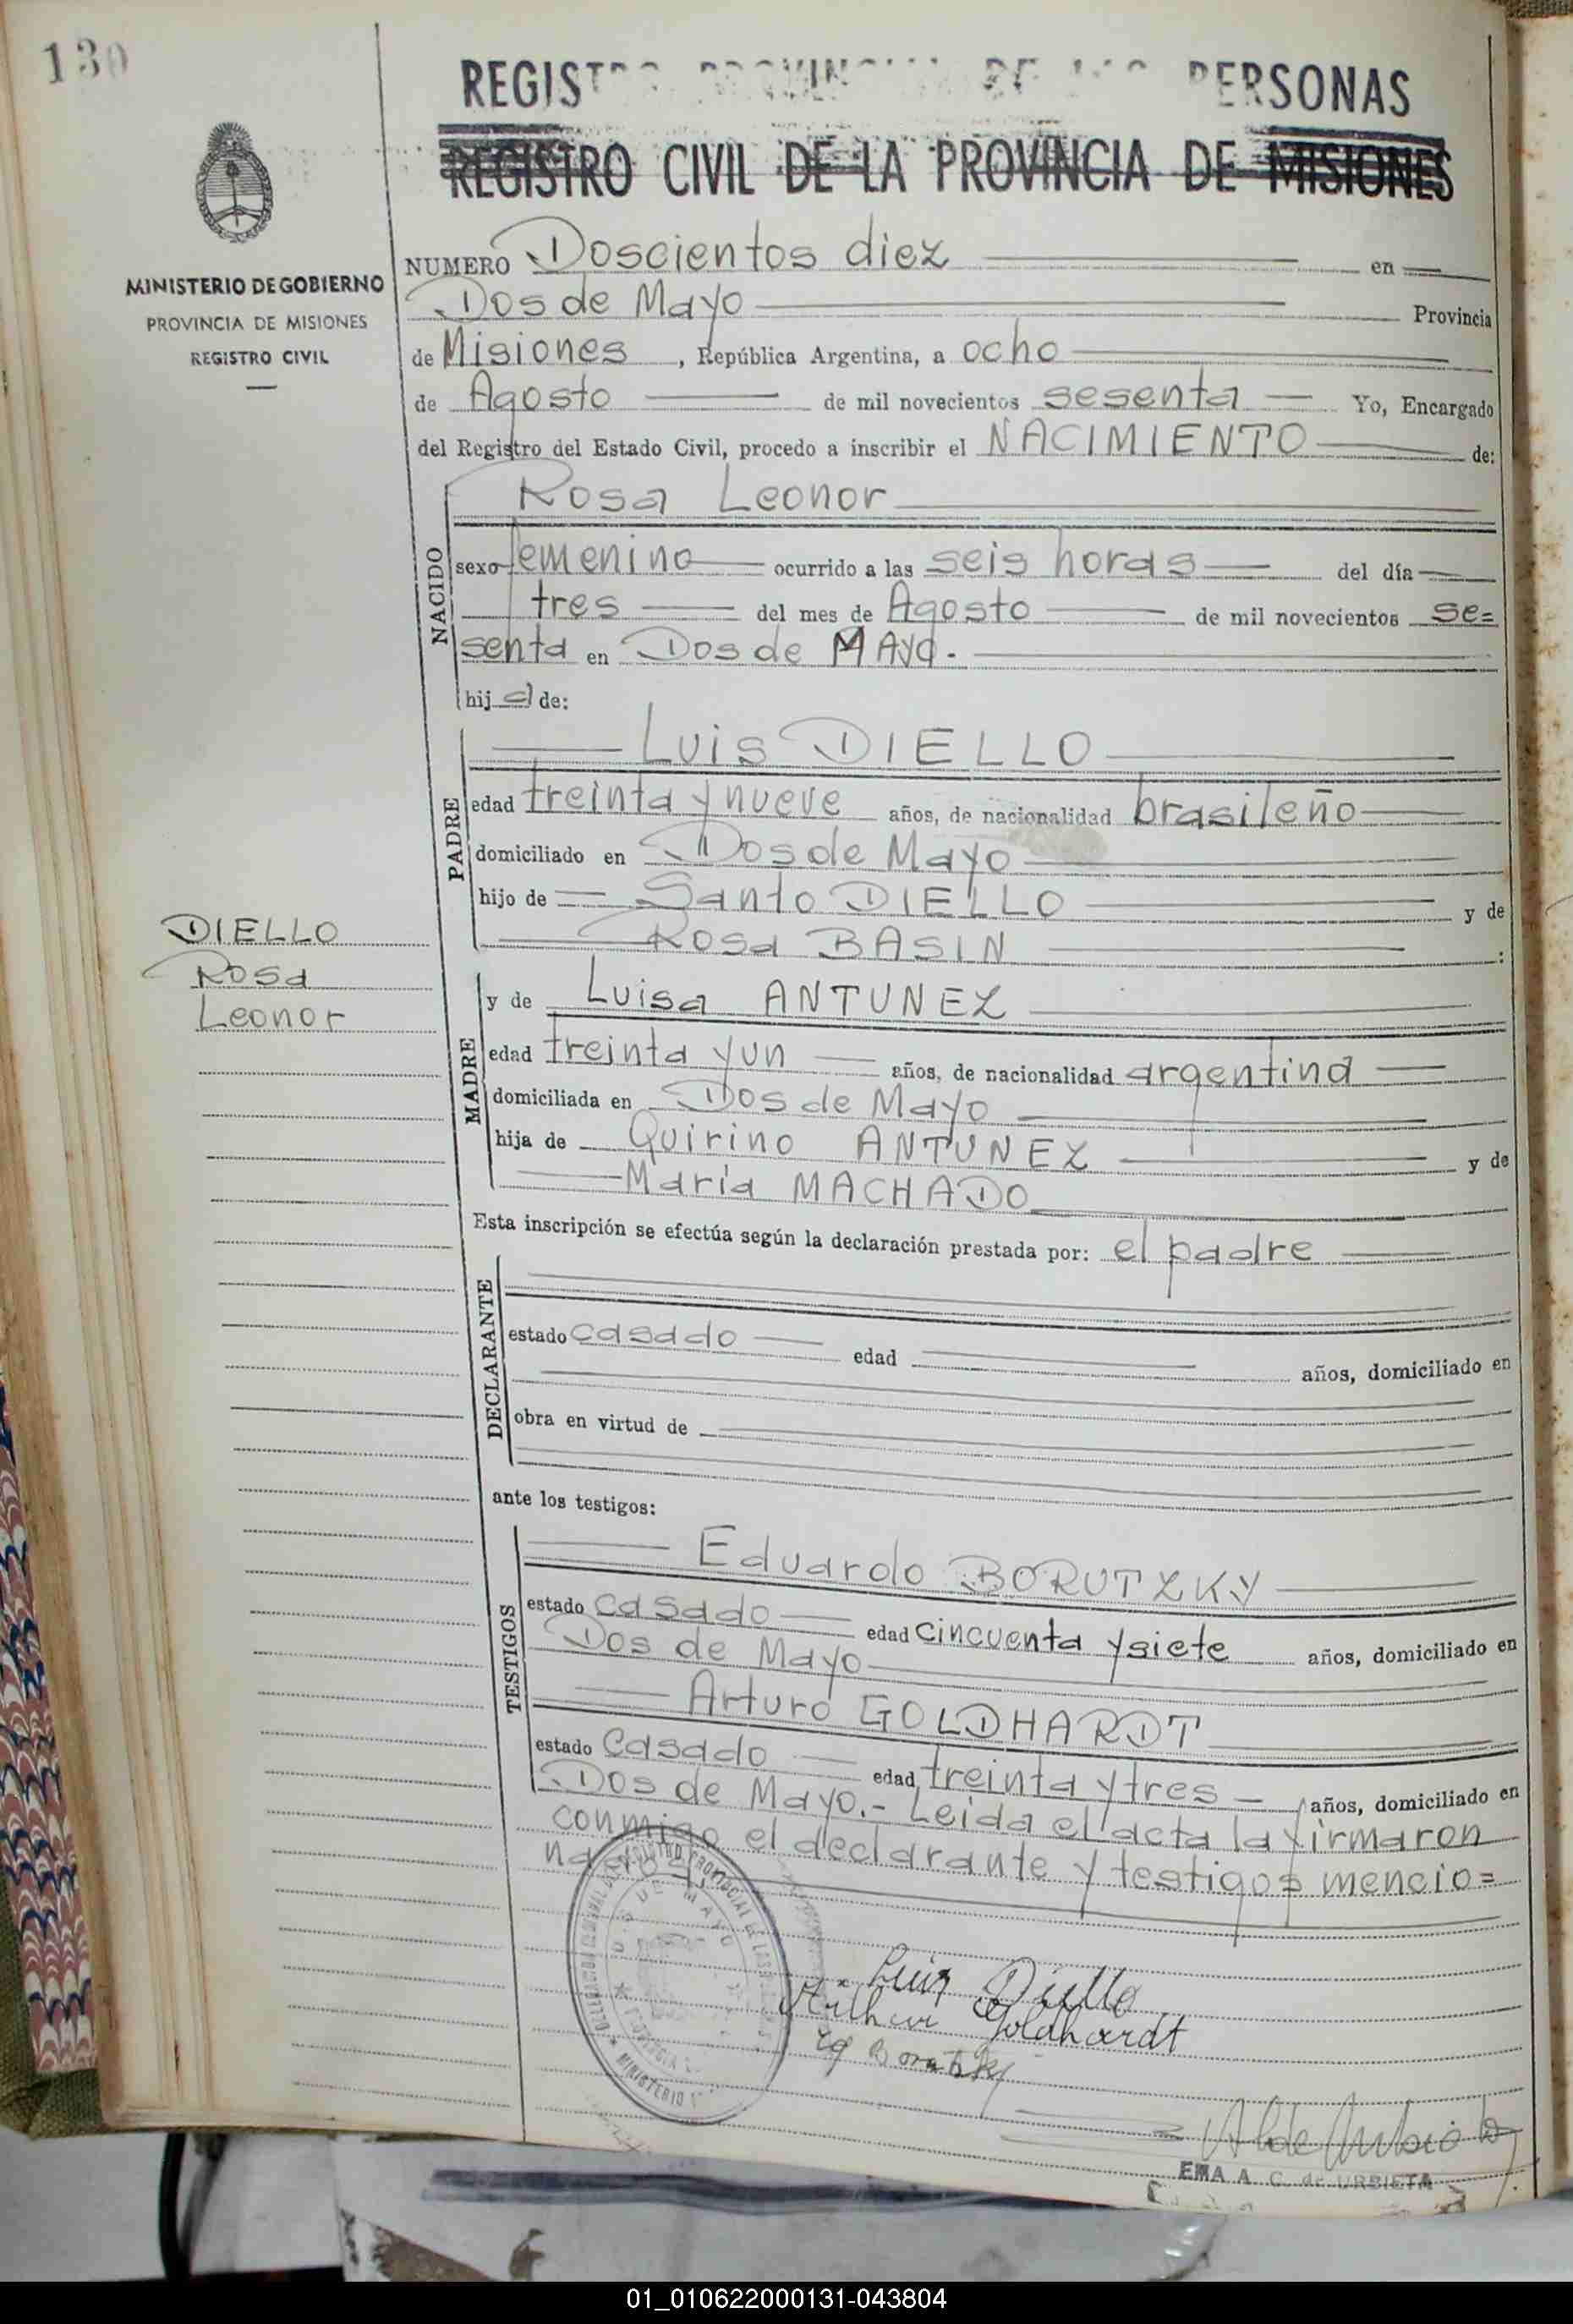 130
REGISTRO PROVINCIAL DE LAS PERSONAS
REGISTRO CIVIL DE LA PROVINCIA DE MISIONES
MINISTERIO DE GOBIERNO
PROVINCIA DE MISIONES
REGISTRO CIVIL
NUMERO Doscientos diez en
Dos de Mayo Provincia
de Misiones, República Argentina, a ocho
de Agosto de mil novecientos sesenta Yo, Encargado
del Registro del Estado Civil, procedo a inscribir el NACIMIENTO de:
NACIDO
Rosa Leonor
sexo femenino ocurrido a las seis horas del día
tres del mes de Agosto de mil novecientos se=
senta en Dos de MAyo.
hija de:
PADRE
Luis DIELLO
edad treinta y nueve años, de nacionalidad brasileño
domiciliado en Dos de Mayo
hijo de Santo DIELLO y de
Rosa BASIN :
DIELLO
Rosa
Leonor
MADRE
y de Luisa ANTUNEZ
edad treinta y un años, de nacionalidad argentina
domiciliada en Dos de Mayo
hija de Quirino ANTUNEZ y de
María MACHADO
Esta inscripción se efectúa según la declaración prestada por: el padre
DECLARANTE
estado casado edad años, domiciliado en
obra en virtud de
ante los testigos:
TESTIGOS
Eduardo BORUTZKY
estado casado edad cincuenta y siete años, domiciliado en
Dos de Mayo
Arturo GOLDHARDT
estado casado edad treinta y tres años, domiciliado en
Dos de Mayo.- Leida el acta la firmaron
conmigo el declarante y testigos mencio=
nados.
DOS DE MAYO
MINISTERIO
Luis Diello
Arthur Goldhardt
Borutzky
EMA A. C. de URBIETA
01_010622000131-043804